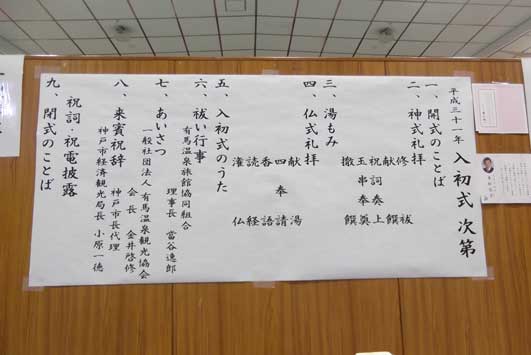 平成三十一年 入初式 次第
一、開式のことば
二、神式礼拝
修祓
献饌
祝詞奏上
玉串奉奠
撤饌
三、湯もみ
四、仏式礼拝
献湯
四奉請
香語
読経
灌仏
五、入初式のうた
六、祓い行事
有馬温泉旅館協同組合
理事長 當谷逸郎
七、あいさつ
一般社団法人有馬温泉観光協会
会長 金井啓修
八、来賓祝辞
神戸市長代理
神戸市経済観光局長 小原一徳
祝詞・祝電披露
九、閉式のことば